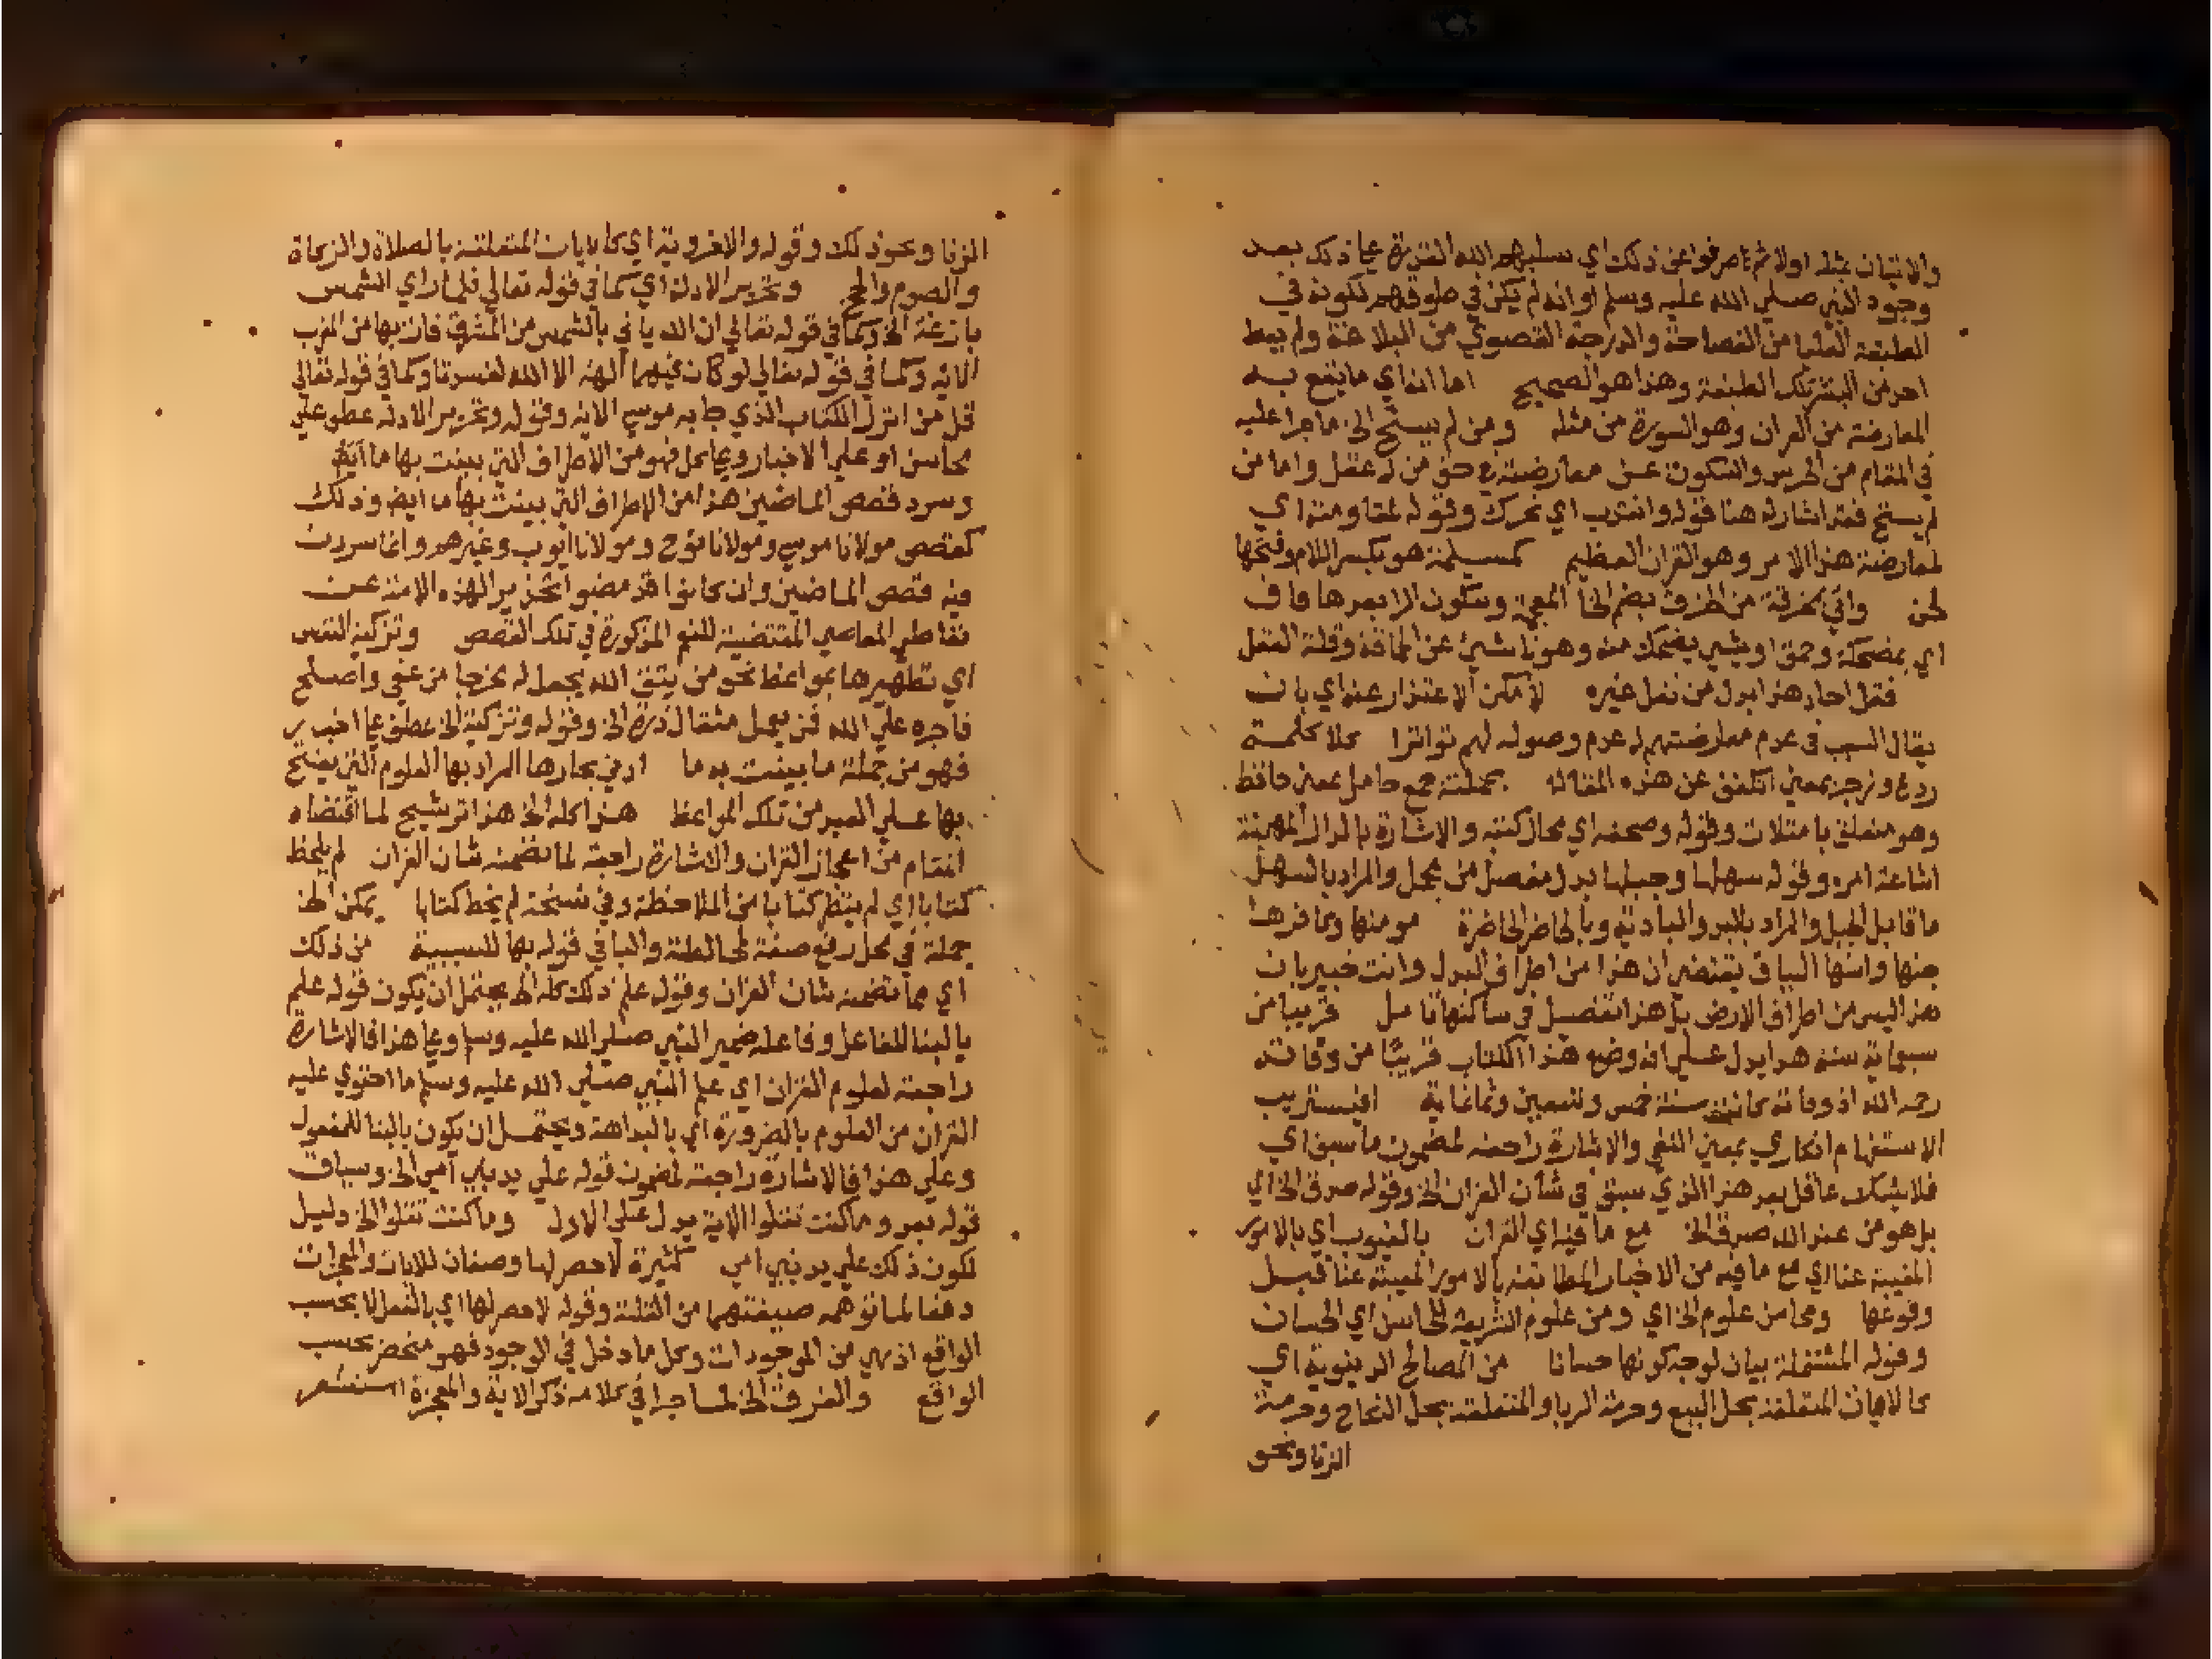 والاتيان بمثله اولا ثم صرفوا عن ذلك اي سلبهم الله القدرة على ذلك بعد
وجود النبي صلي الله عليه وسلم او انه لم يكن في طوقهم لكونه في
الطبقة العليا من الفصاحة والدرجة القصوي من البلاغة ولم يعط
احد من البشر تلك الطبقة وهذا هو الصحيح اما انه اي ما يقع به
المعارضة من القران وهو السورة من مثله ومن لم يستح الخ ما جرا عليه
في المقام من الخرس والسكوت عن معارضته في حق من له عقل واما من
لم يستح فقد اشار له هنا قوله وانتدب اي تحرك وقوله لمقاومته اي
لمعارضة هذا الامر وهو القران العظيم كمسيلمة هو بكسر اللام وفتحها
لحن واتي بخرقة من الخرق بضم الخا المعجمة وسكون الرا بعدها قاف
اي بمضحكة وحمق او بشي يضحك منه وهو ناشئ عن الحماقة وقلة العقل
فنقل احاد هذا بدل من نقل غيره لامكن الاعتذار عنه اي بان
يقال السبب في عدم معارضتهم له عدم وصوله لهم تواترا كلا كلمة
ردع وزجر بمعني انكفف عن هذه المقالة بحملته جمع حامل بمعني حافظ
وهو متعلق بامتلات وقوله وصحفه اي محال كتبه والاشارة بالدال المهملة
اشاعة امره وقوله سهلها وجبلها بدل مفصل من مجمل والمراد بالسهل
ما قابل الجبل والمراد بالبدو البادية وبالحاضر الحاضرة مومنها وكافرها
جنها وانسها السياق يقتضي ان هذا من اطراف البدل وانت خبير بان
هذا ليس من اطراف الارض بل هذا تفصيل في ساكنها تامل قريبا من
سبعماية سنة هذا يدل علي انه وضع هذا الكتاب قريبا من وفاته
رحمه الله اذ وفاته كانت سنة خمس وتسعين وثمانماية افيستريب
الاستفهام انكاري بمعني النفي والاشارة راجعة لمضمون ما سبق اي
فلا يشك عاقل بعد هذا الذي سبق في شان القران الخ وقوله صدق الخ اي
بل هو من عند الله صدق الخ مع ما فيه اي القران بالغيوب اي بالامور
المغيبة عنا اي مع ما فيه من الاخبار المطابقة بالامور المغيبة عنا قبل
وقوعها ومحاسن علوم الخ اي ومن علوم الشريعة المحاسن اي الحسان
وقوله المشتملة بيان لوجه كونها حسانا من المصالح الدينوية اي
كالايات المتعلقة بحل البيع وحرمة الربا والمتعلقة بحل النكاح وحرمة
الزنا ونحو
الزنا ونحو ذلك وقوله والاخروية اي كالايات المتعلقة بالصلاة والزكاة
والصوم والحج وتحرير الادلة اي كما في قوله تعالي فلما راي الشمس
بازغة الخ وكما في قوله تعالي ان الله ياتي بالشمس من المشرق فات بها من المغرب
الاية وكما في قوله تعالي لو كان فيهما الهة الا الله لفسدتا وكما في قوله تعالي
قل من انزل الكتاب الذي جا به موسي الاية وقوله وتحرير الادلة عطف علي
محاسن او علي الاخبار وعلي كل فهو من الاطراف التي بينت بها ما
وسرد قصص الماضين هذا من الاطراف التي بينت بها ما ايضا وذلك
كقصص مولانا موسي ومولانا نوح ومولانا ايوب وغيرهم وانما سردت
فيه قصص الماضين وان كانوا قد مضوا تحذيرا لهذه الامة عن
تعاطي المعاصي المقتضية للنقم المذكورة في تلك القصص وتزكية النفس
اي تطهيرها بمواعظ نحو من يتق الله يجعل له مخرجا من عفي واصلح
فاجره علي الله فمن يعمل مثقال ذرة الخ وقوله وتزكية الخ عطف علي اخبار
فهو من جملة ما بينت به ما ادني بحارها المراد بها العلوم التي يفتح
بها علي العبد من تلك المواعظ هذا كله الخ هذا ترشيح لما اقتضاه
المقام من اعجاز القران والاشارة راجعة لما تضمنه شان القران لم يلحظ
كتابا اي لم ينظر كتابا من الملاحظة وفي نسخة لم يخط كتابا يمكن الخ
جملة في محل رفع صفة لمخالطة والبا في قوله بها للسببية من ذلك
اي مما تضمنه شان القران وقوله علم ذلك كله الخ يحتمل ان يكون قوله علم
بالبنا للفاعل وفاعله ضمير النبي صلي الله عليه وسلم وعلي هذا فالاشارة
راجعة لعلوم القران اي علم النبي صلي الله عليه وسلم ما احتوي عليه
القران من العلوم بالضرورة اي بالبداهة ويحتمل ان يكون بالبنا للمفعول
وعلي هذا فالاشارة راجعة لمضمون قوله علي يد نبي امي الخ وسياق
قوله بعد وما كنت تتلوا الاية يدل علي الاول وما كنت تتلوا الخ دليل
لكون ذلك علي يد نبي امي كثيرة لا حصر لها وصفان للايات والمعجزات
دفعا لما توهمه صيغتهما من القلة وقوله لا حصر لها اي بالفعل لا بحسب
الواقع اذ هي من الموجودات وكل ما دخل في الوجود فهو منحصر بحسب
الواقع والفرق الخ لما جرا في كلامه ذكر الاية والمعجزة استشعر